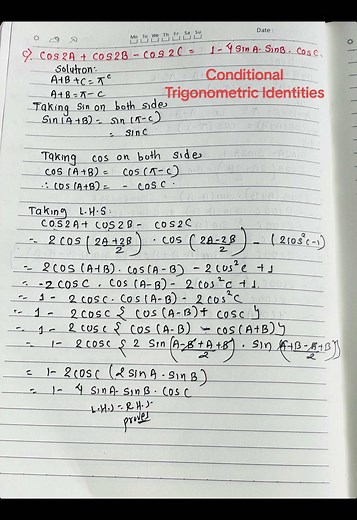 Date :
Mo Tu We Th Fr Sa Su
c) cos2A + cos2B - cos2C = 1 - 4 sinA. sinB. cosC.
Solution:
A+B+C = π^c
A+B = π - C
Conditional
Trigonometric Identities
Taking sin on both sides
Sin(A+B) = sin (π-C)
= sinC
Taking cos on both sides
cos (A+B) = cos (π-C)
∴ cos (A+B) = - cosC.
Taking L.H.S.
cos2A + cos2B - cos2C
= 2 cos (2A+2B/2) . cos (2A-2B/2) - (2cos²C-1)
= 2 cos (A+B). cos(A-B) - 2cos²C + 1
= -2 cosC. cos(A-B) - 2cos²C + 1.
= 1 - 2 cosC. cos(A-B) - 2cos²C
= 1 - 2 cosC { cos(A-B) + cosC }
= 1 - 2 cosC { cos (A-B) - cos(A+B) }
= 1 - 2 cosC { 2 Sin (A-B+A+B/2) . sin (A+B-A+B/2) }
= 1 - 2cosC (2 sinA . sinB)
= 1 - 4 sinA. sinB. cosC
L.H.S = R.H.S.
proved